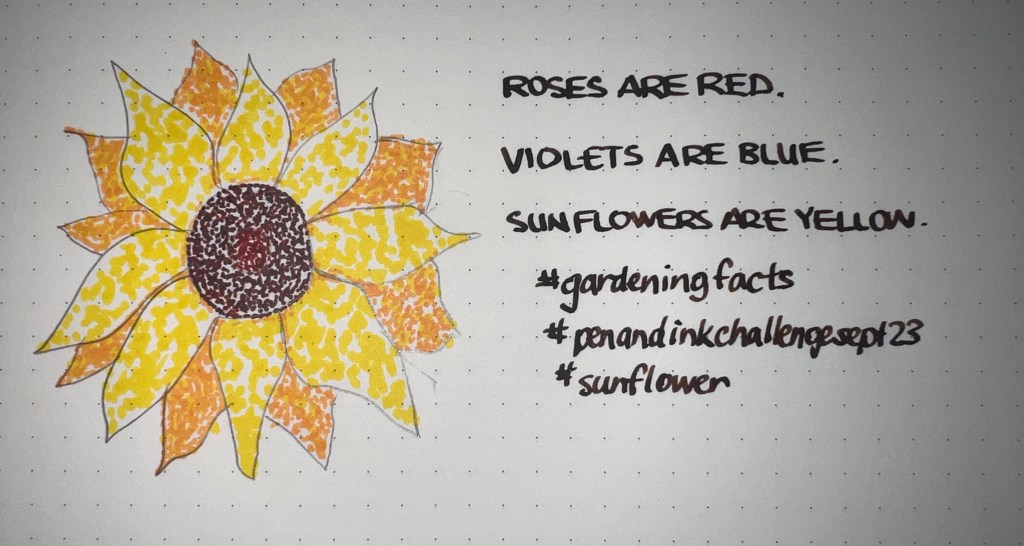 ROSES ARE RED.
VIOLETS ARE BLUE.
SUNFLOWERS ARE YELLOW.
#gardeningfacts
#penandinkchallengesept23
#sunflower